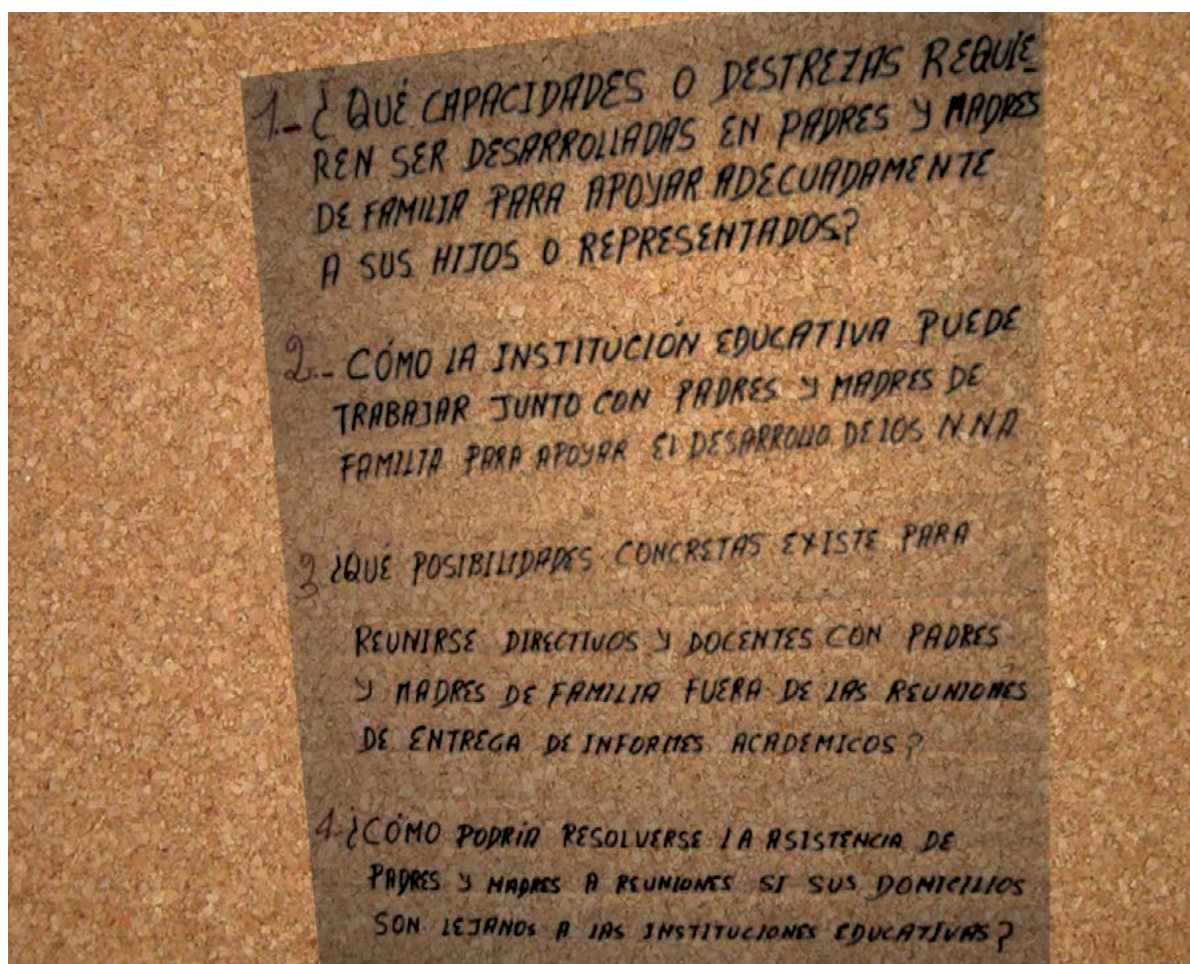 1.- ¿QUÉ CAPACIDADES O DESTREZAS REQUIE
REN SER DESARROLLADAS EN PADRES Y MADRES
DE FAMILIA PARA APOYAR ADECUADAMENTE
A SUS HIJOS O REPRESENTADOS?
2.- CÓMO LA INSTITUCIÓN EDUCATIVA PUEDE
TRABAJAR JUNTO CON PADRES Y MADRES DE
FAMILIA PARA APOYAR EL DESARROLLO DE LOS N N A
3 ¿QUÉ POSIBILIDADES CONCRETAS EXISTE PARA
REUNIRSE DIRECTIVOS Y DOCENTES CON PADRES
Y MADRES DE FAMILIA FUERA DE LAS REUNIONES
DE ENTREGA DE INFORMES ACADEMICOS?
4.- ¿CÓMO PODRÍA RESOLVERSE LA ASISTENCIA DE
PADRES Y MADRES A REUNIONES SI SUS DOMICILIOS
SON LEJANOS A LAS INSTITUCIONES EDUCATIVAS?